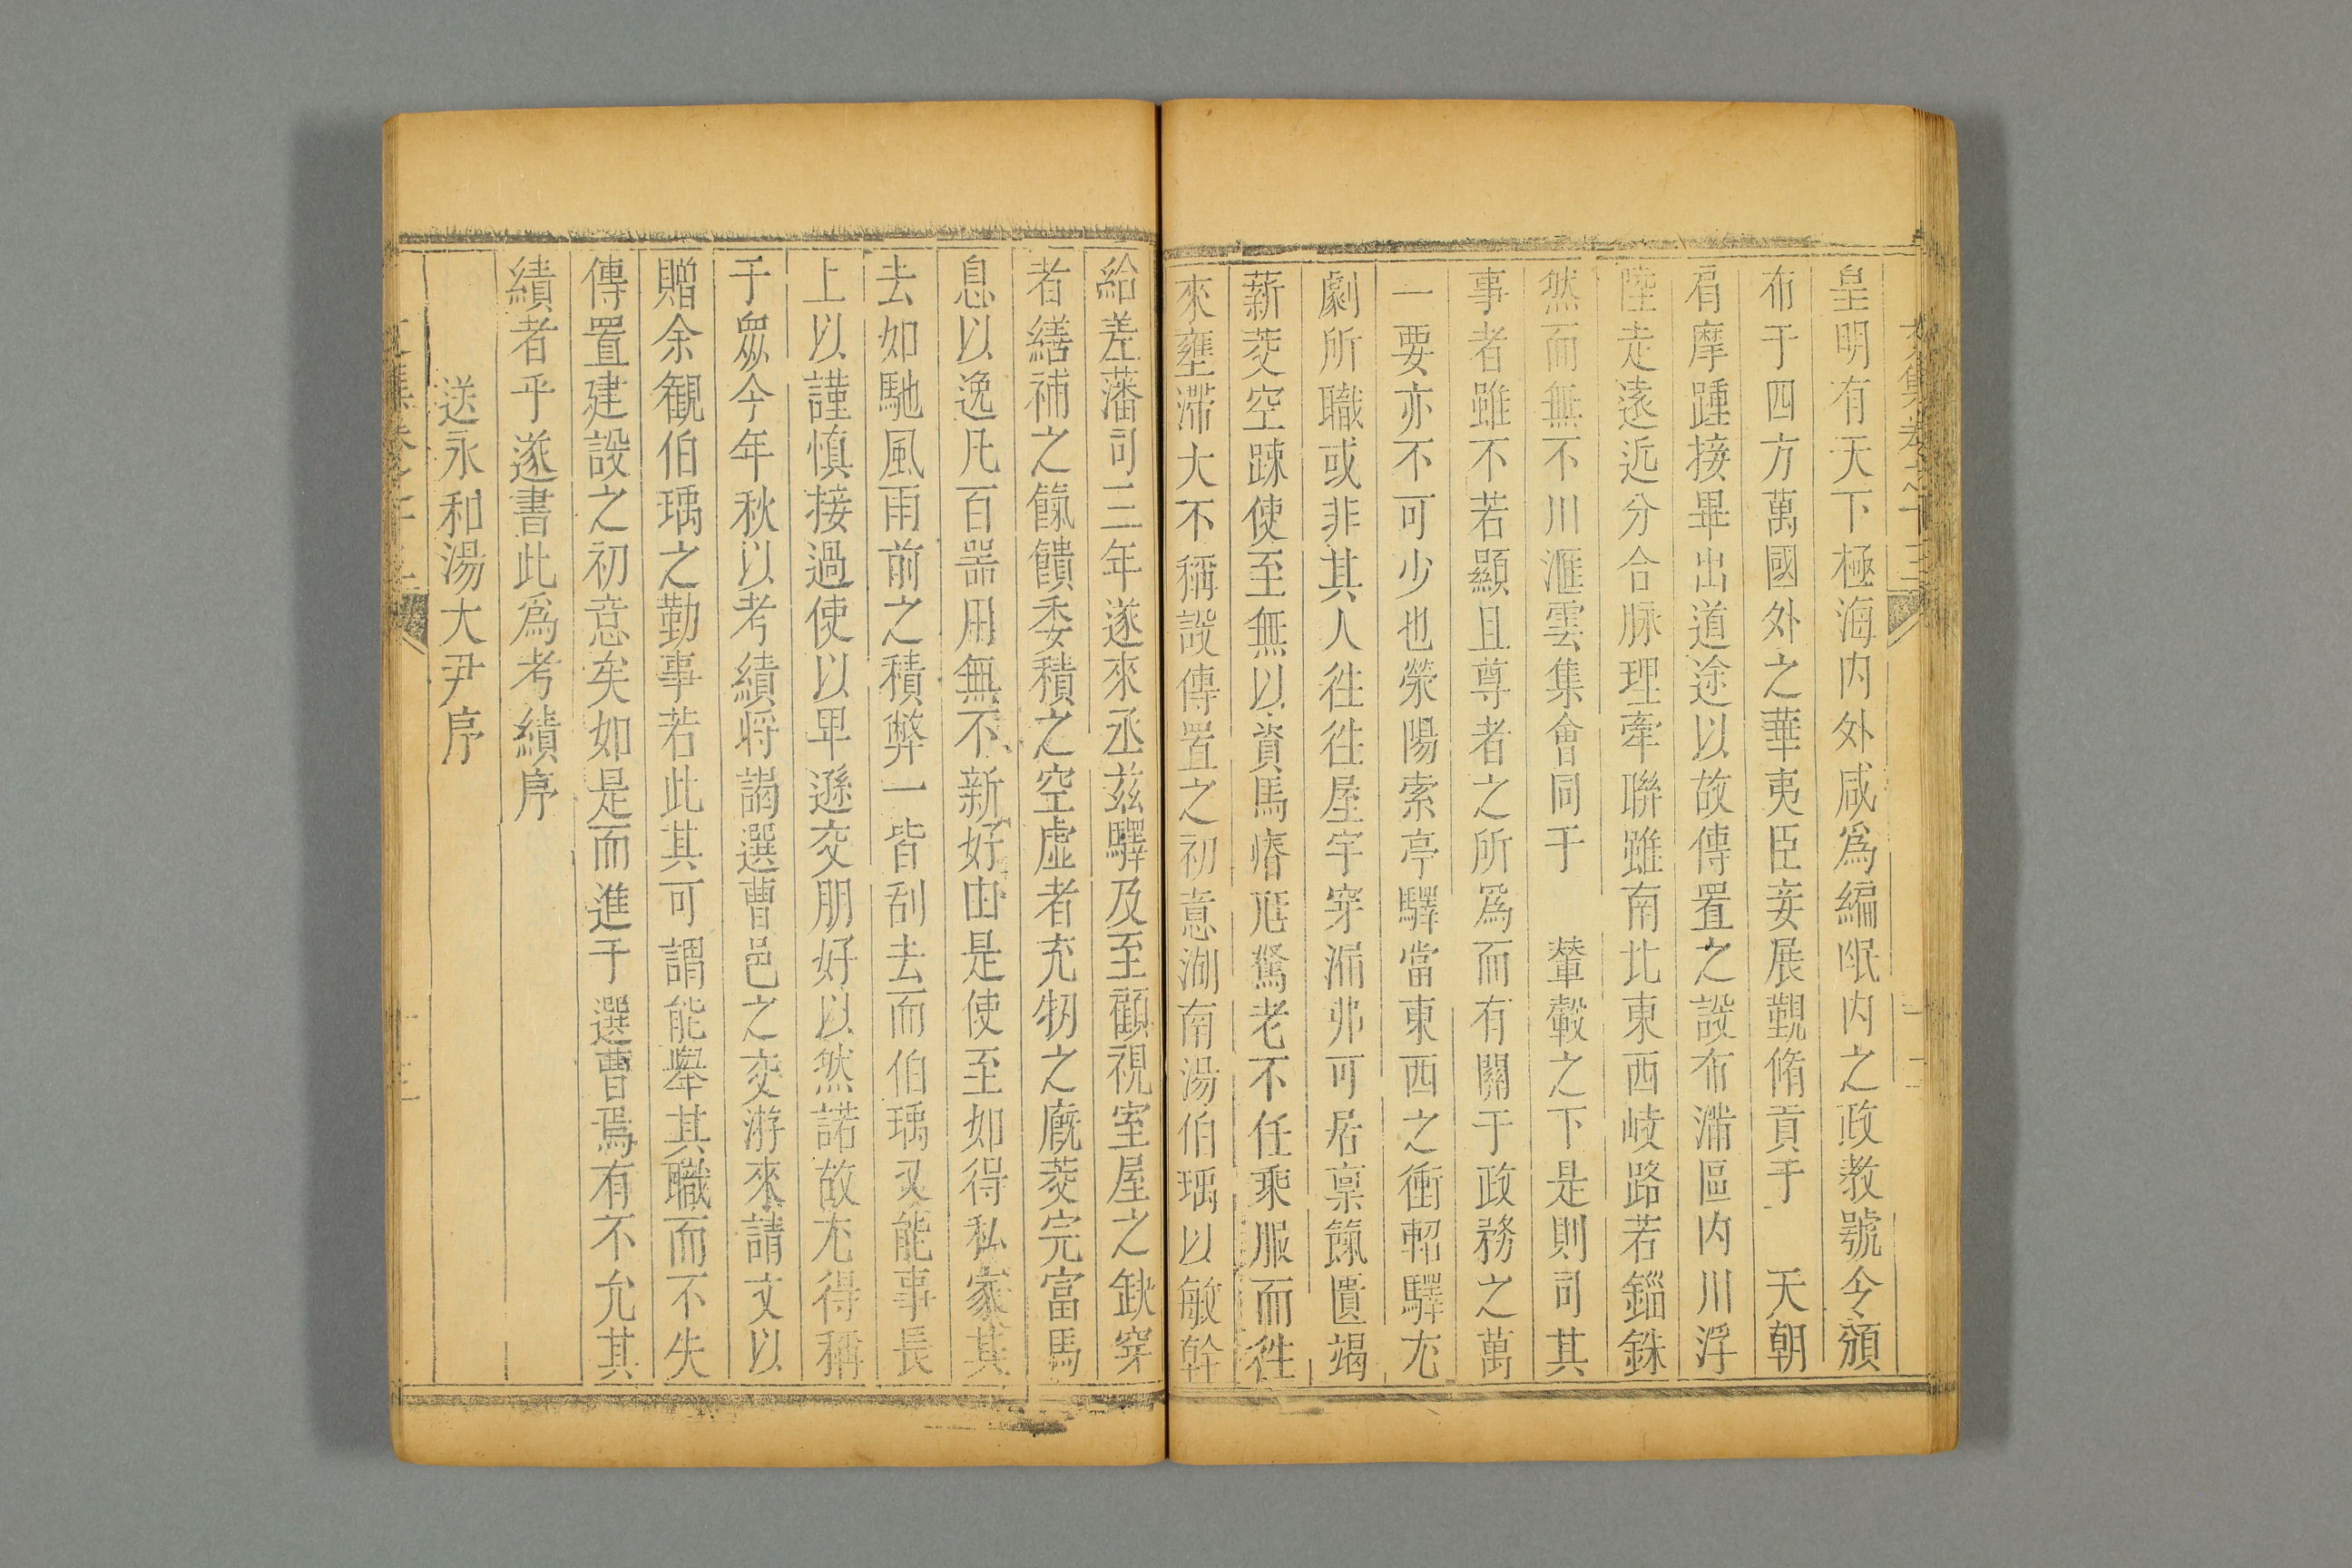 皇明有天下極海内外咸爲編氓内之政教號令頒
布于四方萬國外之華夷臣妾展覲脩貢于　天朝
肩摩踵接畢出道途以故傳置之設布滿區内川浮
陸走遠近分合脉理牽聯雖南北東西岐路若錙銖
然而無不川滙雲集會同于　輦轂之下是則司其
事者雖不若顯且尊者之所爲而有關于政務之萬
一要亦不可少也滎陽索亭驛當東西之衝軺驛尤
劇所職或非其人徃徃屋宇穿漏弗可居稟餼匱竭
薪茭空踈使至無以資馬瘠尩駑老不任乘服而徃
來壅滯大不稱設傳置之初意湖南湯伯瑀以敏幹
給差藩司三年遂來丞玆驛及至顧視室屋之缺穿
者繕補之餼饋委積之空虚者充牣之廐茭完富馬
息以逸凡百器用無不新好由是使至如得私家其
去如馳風雨前之積弊一皆刮去而伯瑀又能事長
上以謹慎接過使以卑遜交朋好以然諾故尤得稱
于衆今年秋以考績将謁選曹邑之交游來請文以
贈余観伯瑀之勤事若此其可謂能舉其職而不失
傳置建設之初意矣如是而進于選曹焉有不允其
績者乎遂書此爲考績序
送永和湯大尹序